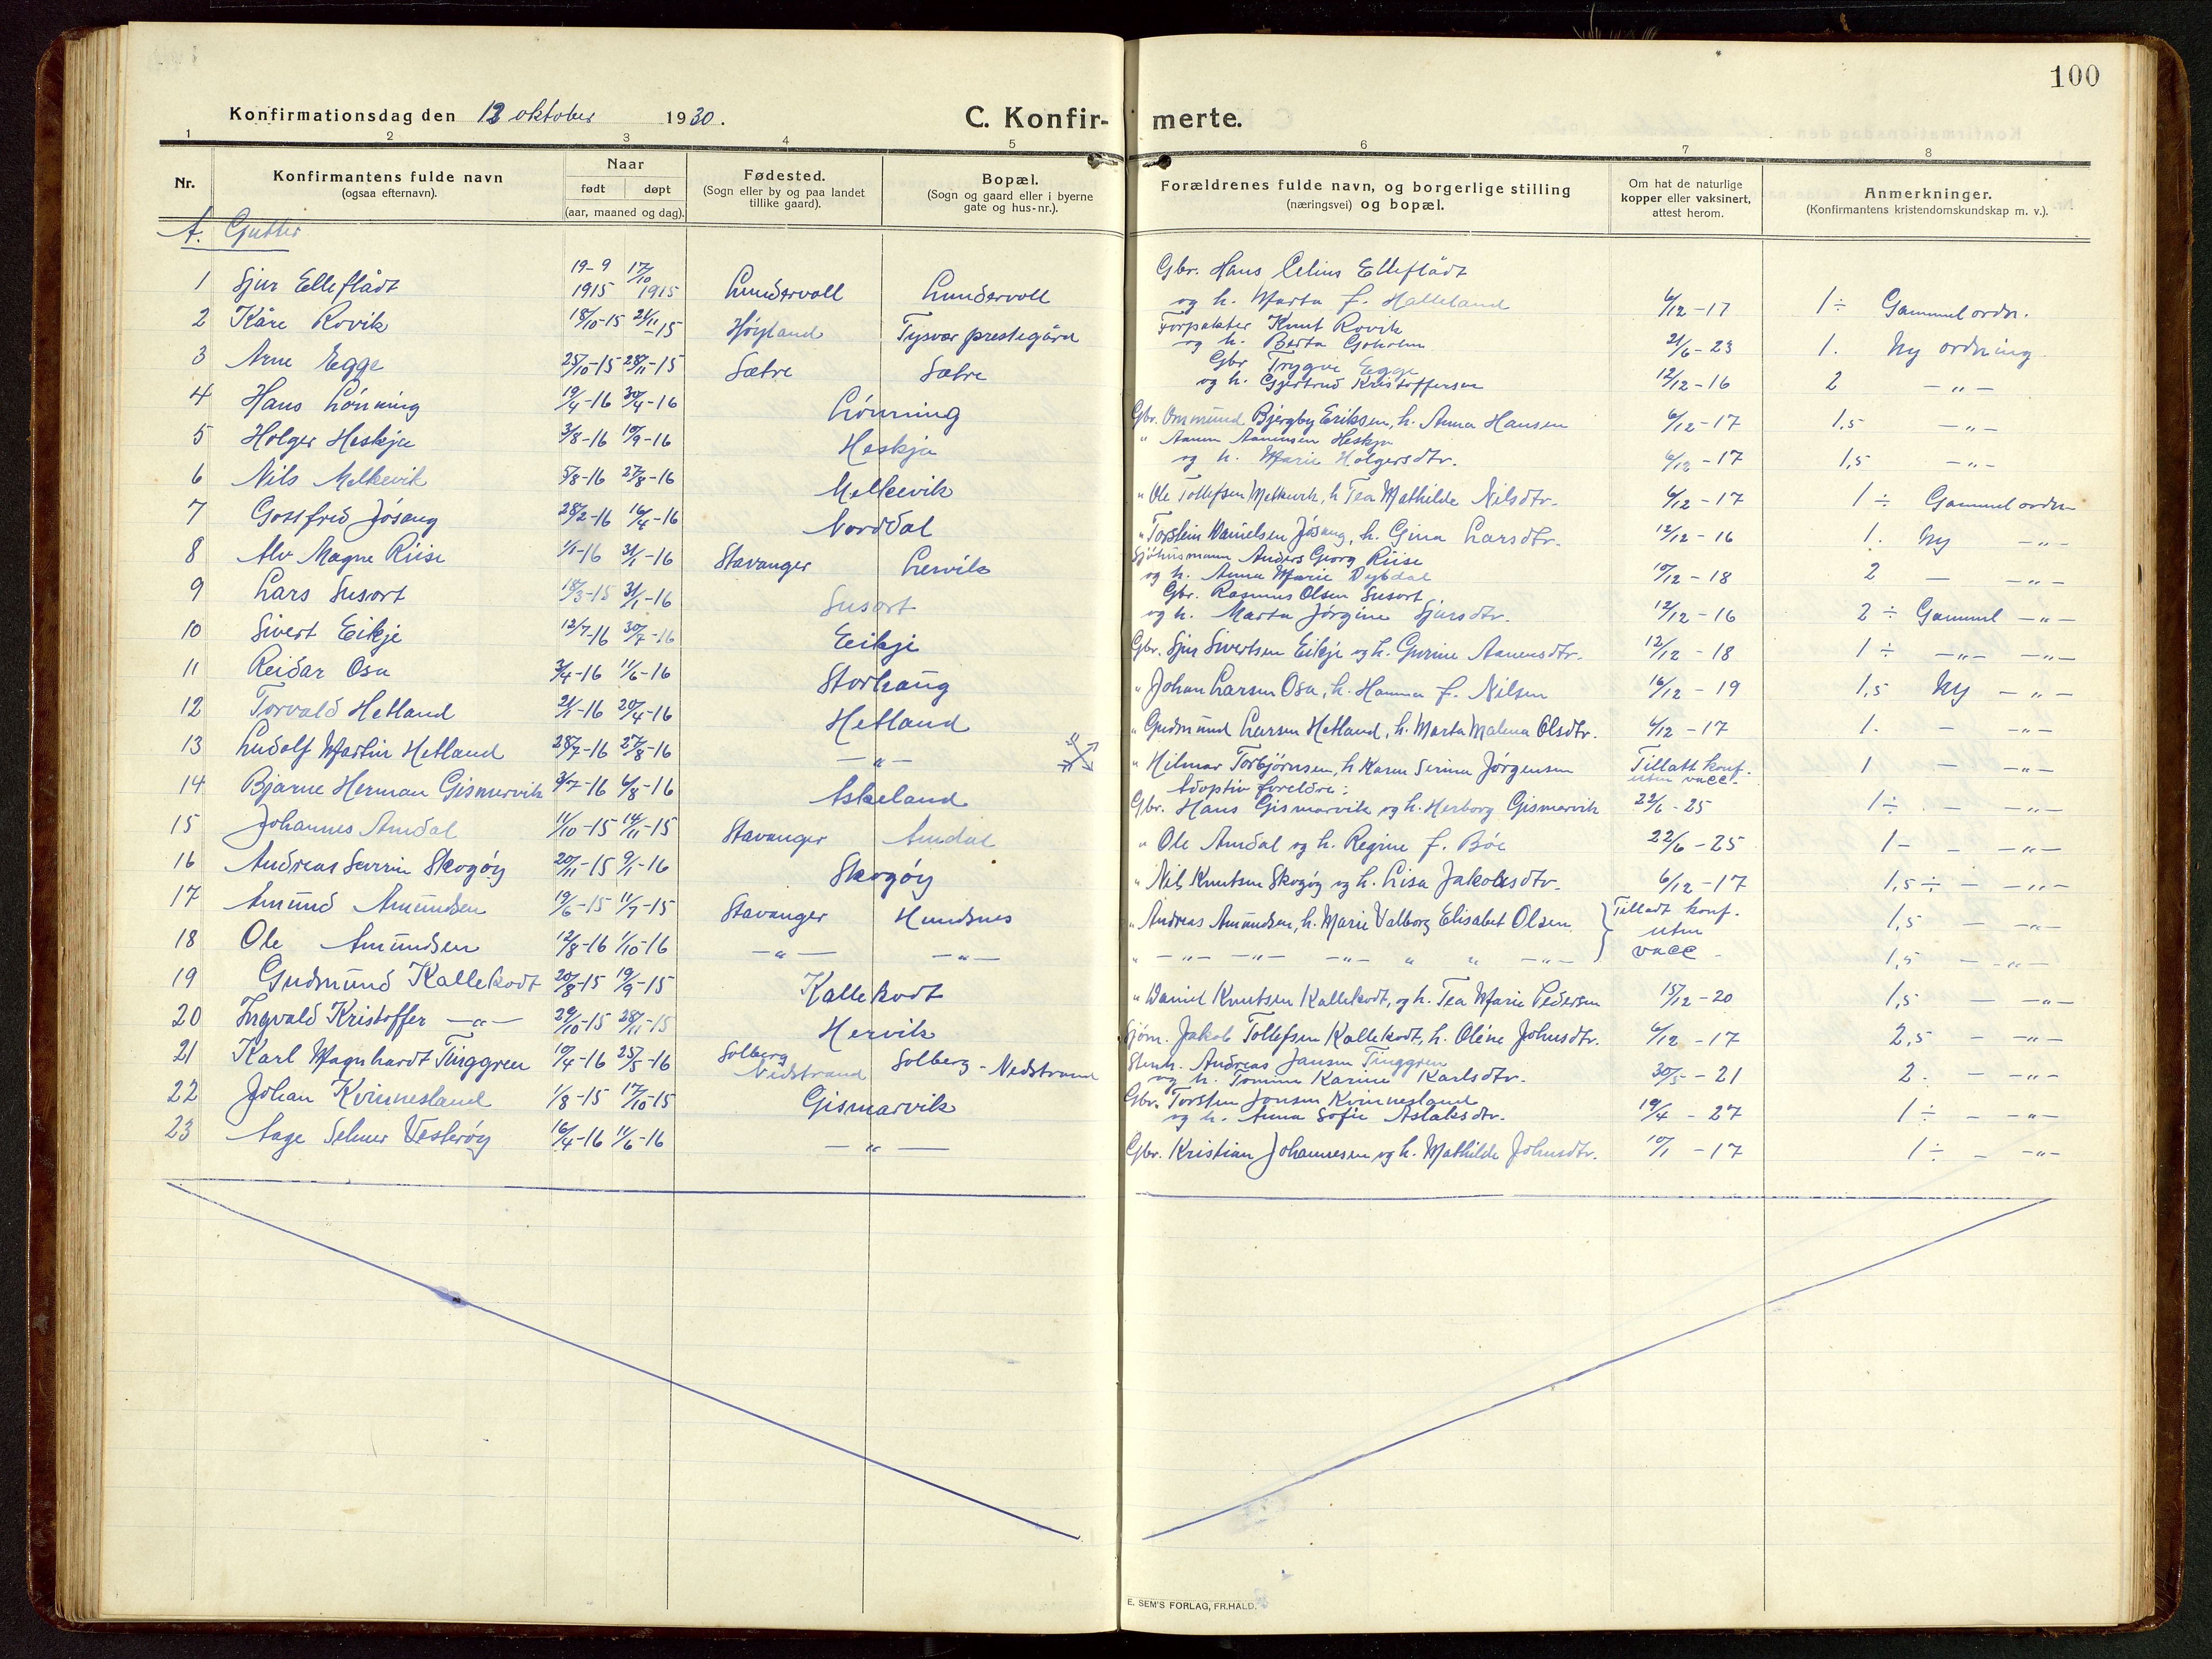 100
Konfirmationsdag den 12 oktober 1930.
C. Konfirmerte.
1 2 3 4 5 6 7 8
Nr.
Konfirmantens fulde navn
(ogsaa efternavn).
Naar
født døpt
(aar, maaned og dag).
Fødested.
(Sogn eller by og paa landet
tillike gaard).
Bopæl.
(Sogn og gaard eller i byerne
gate og hus-nr.).
Forældrenes fulde navn, og borgerlige stilling
(næringsvei) og bopæl.
Om hat de naturlige
kopper eller vaksinert,
attest herom.
Anmerkninger.
(Konfirmantens kristendomskundskap m. v.).
A. Gutter
1 Sjur Elleflådt 19-9 1915 17/10 1915 Lundervoll Lundervoll Gbr. Hans Celius Elleflådt
og h. Marta f. Halleland 6/12 -17 1 ÷ Gammel ordn.
2 Kåre Rovik 18/10-15 21/11-15 Høyland Tysvær prestegård Forpakter Knut Rovik
og h. Berta 21/6 - 23 1. Ny ordning
3 Arne Egge 25/10-15 28/11-15 Sætre Sætre Gbr Trygve Egge
og h. Gjertrud Kristoffersen 12/12 -16 2 -"-
4 Hans Lønning 19/4-16 30/4-16 Lønning Gbr. Ommund Bjergby Eriksen, h. Anna Hansen 6/12 -17 1.5 -"-
5 Holger Heskja 3/8-16 10/9-16 Heskja " Aanen Aanensen Heskja
og h. Marie Holgersdtr. 6/12 -17 1,5 -"-
6 Nils Melkevik 5/8-16 27/8-16 Melkevik " Ole Tollefsen Melkevik, h Tea Mathilde Nilsdtr. 6/12 -17 1 ÷ Gammel ordn-
7 Gottfred Jøsang 28/2-16 16/4-16 Norddal " Torstein Danielsen Jøsang, h. Gina Larsdtr. 12/12 - 16 1. Ny -"-
8 Alv Magne Riise 1/1-16 31/1-16 Stavanger Lervik Sjøhusmann Anders Georg Riise
og h. Anna Marie Dybdal 10/12 - 18 2 - -"-
9 Lars Susort 18/3-15 31/1-16 Susort Gbr. Rasmus Olsen Susort
og h. Marta Jørgine Sjursdtr. 12/12 - 16 2 ÷ Gammel -"-
10 Sivert Eikje 12/7-16 30/7-16 Eikje Gbr. Sjur Sivertsen Eikje og h. Gurine Aanensdtr. 12/12 - 18 1 ÷ -"- -"-
11 Reidar Osa 3/4-16 11/6-16 Storhaug " Johan Larsen Osa, h. Hanna f. Nilsen 16/12 - 19 1,5 Ny -"-
12 Torvald Hetland 21/1-16 20/4-16 Hetland " Gudmund Larsen Hetland, h. Marta Malena Olsdtr. 6/12 -17 1. - -"-
13 Ludolf Martin Hetland 28/7-16 27/8-16 -"- " Hilmar Torbjørnsen, h Karen Serina Jørgensen Tillatt konf.
uten vacc. 1 - -"-
14 Bjarne Herman Gismervik 3/7-16 6/8-16 Askeland Adoptiv foreldre:
Gbr. Hans Gismarvik og h. Herborg Gismarvik 22/6 - 25 1 ÷ - -"-
15 Johannes Amdal 11/10-15 14/11-15 Stavanger Amdal " Ole Amdal og h. Regine f. Bøe 22/6 -25 1- - -"-
16 Andreas Severin Skogøy 20/11-15 9/1-16 Skogøy " Nils Knutsen Skogøy og h. Lisa Jakobsdtr. 6/12 -17 1,5 ÷ - -"-
17 Amund Amundsen 19/6-15 11/7-15 Stavanger Hundsnes " Andreas Amundsen, h. Marie Valborg Elisabet Olsen Tilladt konf.
uten
vacc - 1,5 - -"-
18 Ole Amundsen 12/8-16 1/10-16 -"- -"- " -"- -"- -"- " " -"- 1,5 - -"-
19 Gudmund Kallekodt 20/8-15 19/9-15 Kallekodt " Daniel Knutsen Kallekodt, og h. Tea Marie Pedersen 15/12 - 20 1,5 - -"-
20 Ingvald Kristoffer -"- 29/10-15 28/11-15 Hervik Sjøm. Jakob Tollefsen Kallekodt, h. Oléne Johnsdtr. 6/12 -17 2,5 - -"-
21 Karl Magnhardt Tinggren 10/4-16 25/5-16 Solberg
Nedstrand Solberg - Nedstrand Stenh. Andreas Jansen Tinggren
og h. Tomine Karine Karlsdtr. 30/5 - 21 2. - -"-
22 Johan Kvinnesland 1/8-15 17/10-15 Gismarvik Gbr. Torsten Jonsen Kvinnesland
og h. Anna Sofie Aslaksdtr. 19/4 - 27 1 ÷ - -"-
23 Aage Selmer Vesterøy 16/4-16 11/6-16 -"- Gbr. Kristian Johannesen og h. Mathilde Johnsdtr. 10/1 -17 1 ÷ - -"-
E. SEM'S FORLAG, FR.HALD.